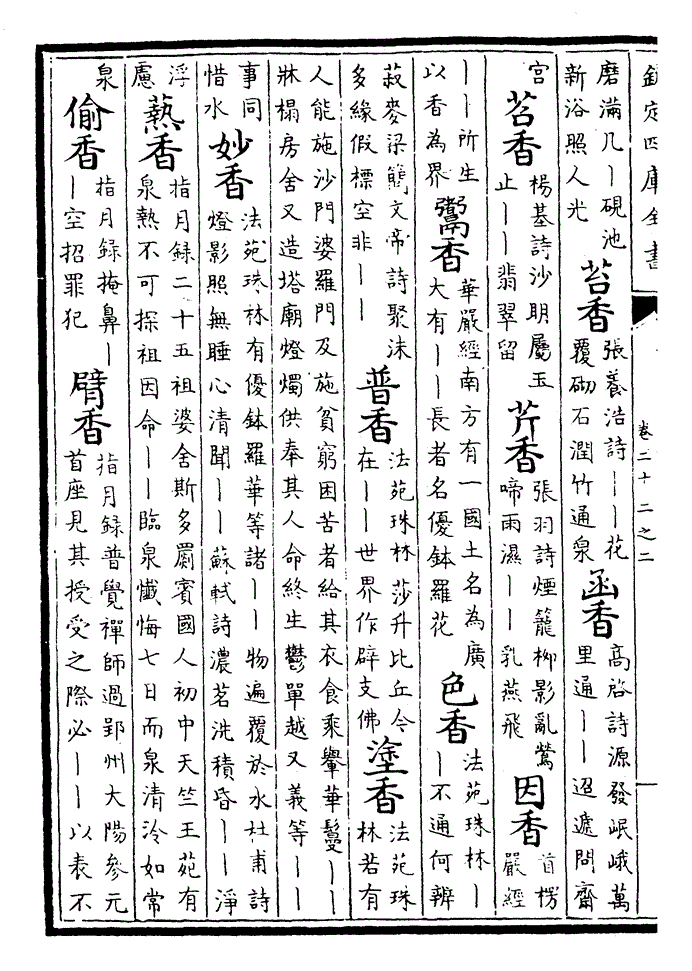 欽定四庫全書
卷二十二之二
磨滿几丨硯池
新浴照人光
苔香
張養浩詩丨丨花
覆砌石潤竹通泉
函香
高啓詩源發岷峨萬
里通丨丨迢遞問齋
宮
苕香
楊基詩沙明屬玉
止丨丨翡翠留
芹香
張羽詩煙籠柳影亂鶯
啼雨濕丨丨乳燕飛
因香
首楞
嚴經
丨丨所生
以香為界
鬻香
華嚴經南方有一國土名為廣
大有丨丨長者名優鉢羅花
色香
法苑珠林丨
丨不通何辨
菽麥梁簡文帝詩聚沫
多緣假標空非丨丨
普香
法苑珠林莎升比丘今
在丨丨世界作辟支佛
塗香
法苑珠
林若有
人能施沙門婆羅門及施貧窮困苦者給其衣食乘轝華鬘丨丨
牀榻房舍又造塔廟燈燭供奉其人命終生鬱單越又義等丨丨
事同
惜水
妙香
法苑珠林有優鉢羅華等諸丨丨物遍覆於水杜甫詩
燈影照無睡心清聞丨丨蘇軾詩濃茗洗積昏丨丨淨
浮
慮
熱香
指月録二十五祖婆舍斯多罽賓國人初中天竺王苑有
泉熱不可探祖因命丨丨臨泉懺悔七日而泉清泠如常
泉
偷香
指月録掩鼻丨
丨空招罪犯
臂香
指月録普覺禪師過郢州大陽參元
首座見其授受之際必丨丨以表不